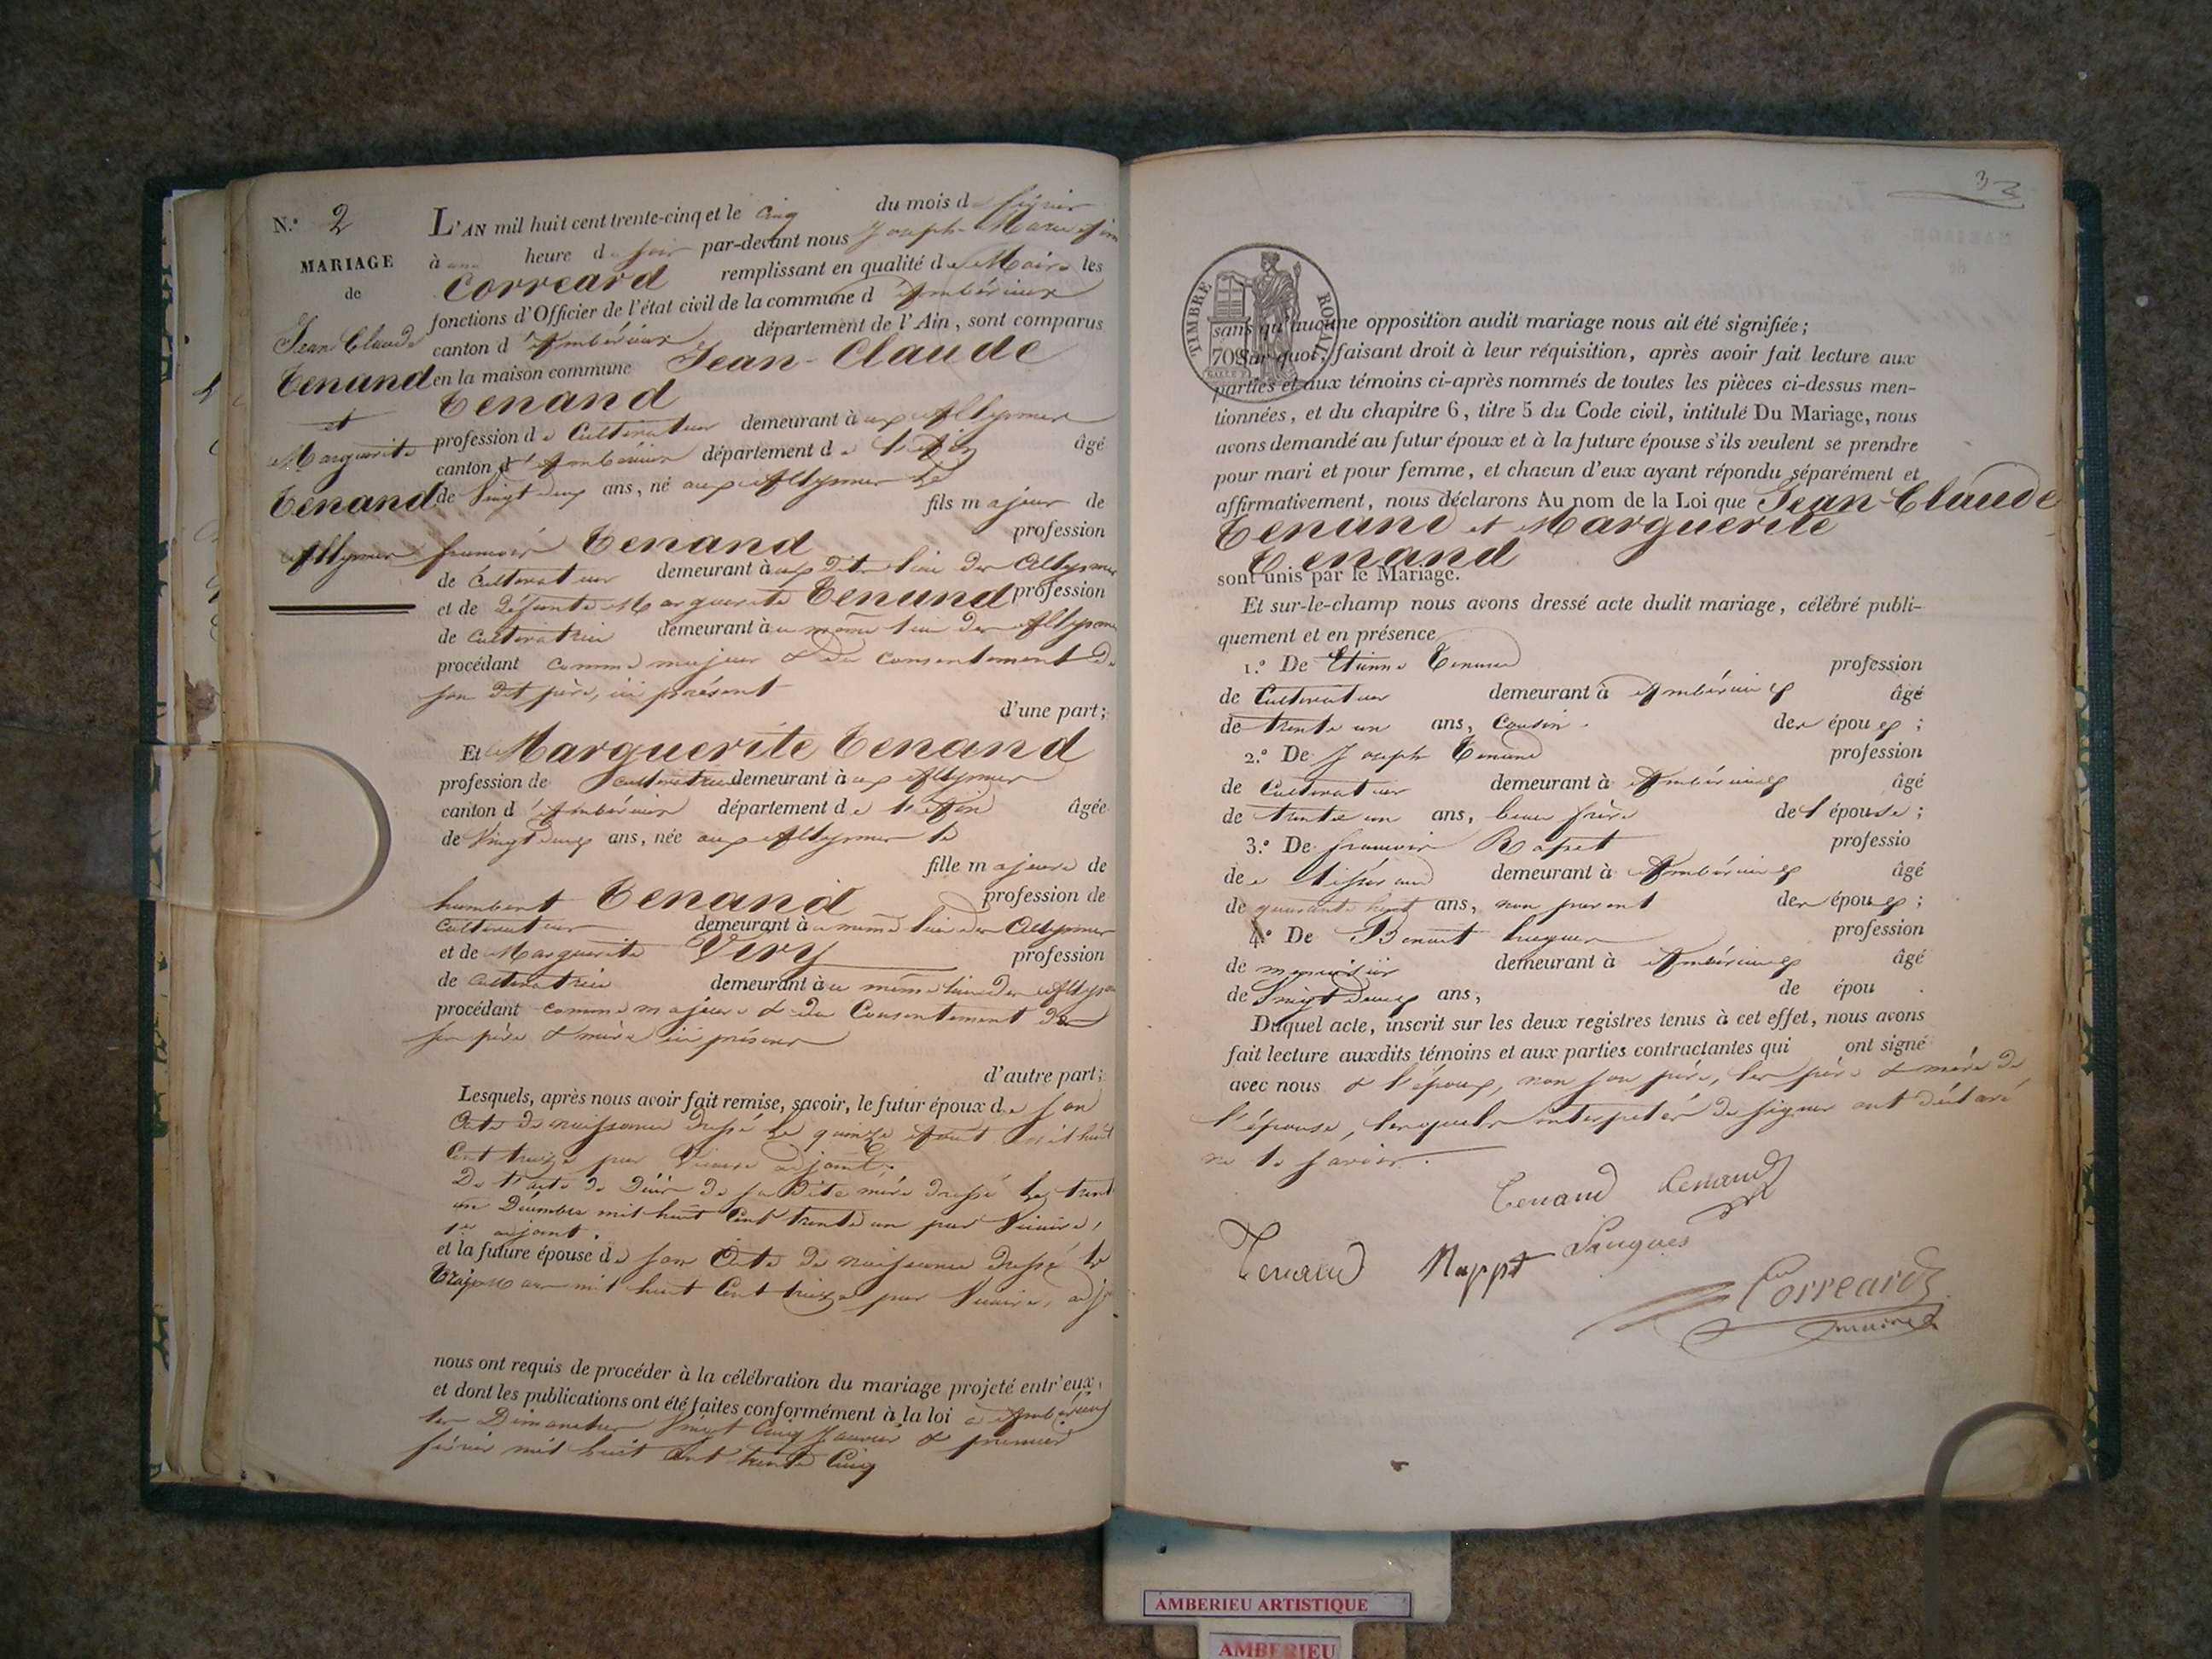 N.° 2
MARIAGE
de
Jean Claude
Tenand
et
Marguerite
Tenand
Allymes
L'AN mil huit cent trente-cinq et le cinq du mois de février
à une heure du soir par-devant nous Joseph-Marie
Correard remplissant en qualité de Maire les
fonctions d'Officier de l'état civil de la commune d'Ambérieux
canton d'Ambérieux département de l'Ain, sont comparus
en la maison commune Jean-Claude
Tenand
profession de Cultivateur demeurant aux Allymes
canton d'Ambérieux département de l'Ain âgé
de Vingt deux ans, né aux Allymes le
fils majeur de
françois Tenand profession
de cultivateur demeurant à dit lieu des Allymes
et de défunte Marguerite Tenand profession
de cultivatrice demeurant au même lieu des Allymes
procédant comme majeur & du consentement de
son dit père, ici présent
d'une part;
Et Marguerite Tenand
profession de cultivatrice demeurant à aux Allymes
canton d'Ambérieux département de l'Ain âgée
de Vingt deux ans, née aux Allymes le
fille majeure de
humbert Tenand profession de
Cultivateur demeurant au même lieu des Allymes
et de Marguerite Viry profession
de cultivatrice demeurant au même lieu des Allymes
procédant comme majeure & du Consentement de
ses père & mère ici présens
d'autre part;
Lesquels, après nous avoir fait remise, savoir, le futur époux de son
Acte de naissance dressé le quinze Aout mil huit
Cent treize par adjoint,
De l'acte de Décès de sa dite mère dressé le trente
un Décembre mil huit Cent trente un par
1er adjoint.
et la future épouse de son Acte de naissance dressé le
Mars mil huit Cent treize par
nous ont requis de procéder à la célébration du mariage projeté entr'eux,
et dont les publications ont été faites conformément à la loi à Ambérieux
les Dimanches Vingt Cinq Janvier & premier
février mil huit Cent trente Cinq
3
TIMBRE ROYAL
70
sans qu'aucune opposition audit mariage nous ait été signifiée;
Sur quoi, faisant droit à leur réquisition, après avoir fait lecture aux
parties et aux témoins ci-après nommés de toutes les pièces ci-dessus men-
tionnées, et du chapitre 6, titre 5 du Code civil, intitulé Du Mariage, nous
avons demandé au futur époux et à la future épouse s'ils veulent se prendre
pour mari et pour femme, et chacun d'eux ayant répondu séparément et
affirmativement, nous déclarons Au nom de la Loi que Jean-Claude
Tenand et Marguerite
Tenand
sont unis par le Mariage.
Et sur-le-champ nous avons dressé acte dudit mariage, célébré publi-
quement et en présence
1.° De Etienne Tenand profession
de Cultivateur demeurant à Ambérieux âgé
de trente un ans, Cousin des époux;
2.° De Joseph Tenand profession
de Cultivateur demeurant à Ambérieux âgé
de trente un ans, beau frère de l'épouse;
3.° De françois profession
de tisserand demeurant à Ambérieux âgé
de quarante huit ans, non parent des époux;
4.° De Benoit profession
de menuisier demeurant à Ambérieux âgé
de Vingt deux ans, de épou .
Duquel acte, inscrit sur les deux registres tenus à cet effet, nous avons
fait lecture auxdits témoins et aux parties contractantes qui ont signé
avec nous & l'époux, non son père, les père & mère de
l'épouse, lesquels de signer ont déclaré
ne le savoir.
Tenand Tenand
Tenand
Correard
maire
AMBERIEU ARTISTIQUE
AMBERIEU